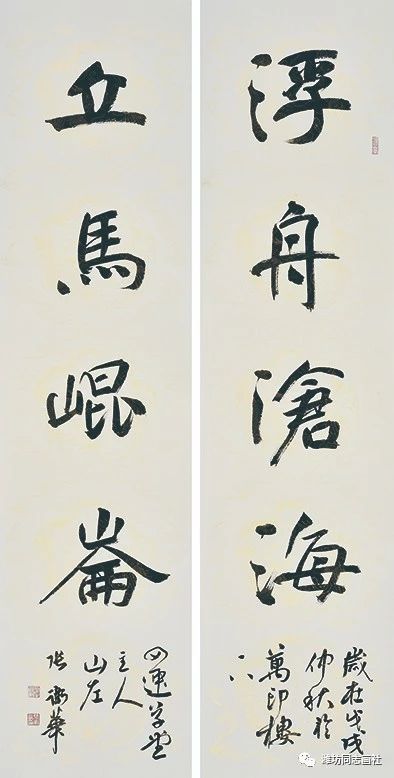 浮舟滄海
歲在戊戌
仲秋於
萬印樓
下
立馬崐崙
草堂
主人
山左
張衛華
潍坊同志画社